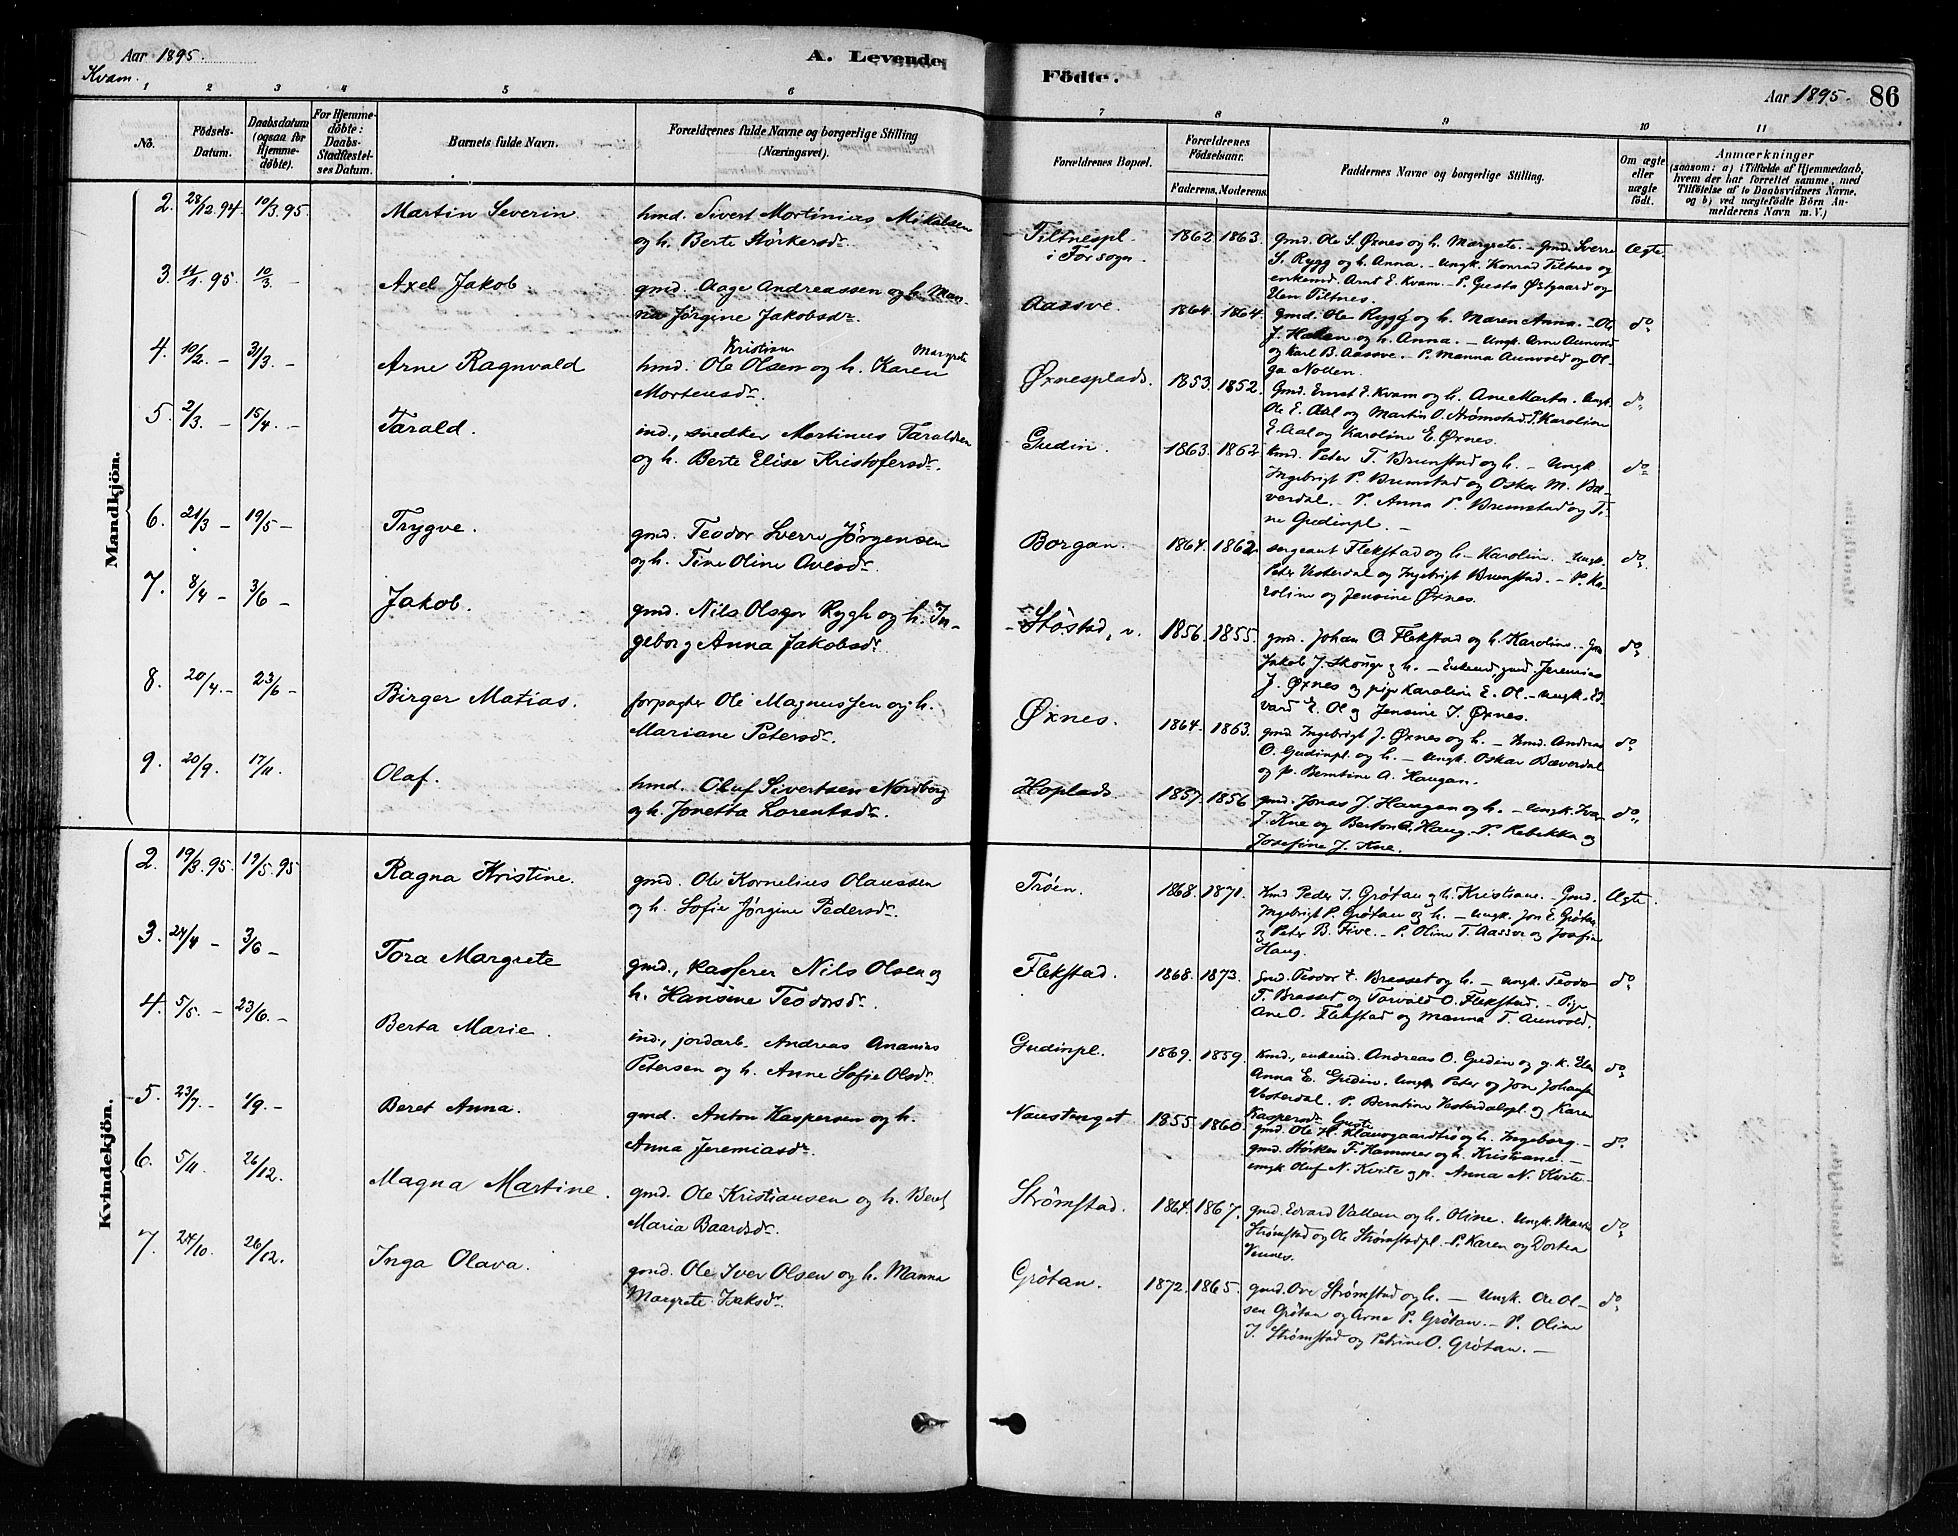 Aar 1895.
Kvam.
A. Levende
Födte.
Aar 1895. 86
1 2 3 4 5 6 7 8 9 10 11
No. Födsels-Datum. Daabsdatum (ogsaa for Hjemmedöbte). For Hjemmedöbte: Daabs-Stadfæstelses Datum. Barnets fulde Navn. Forældrenes fulde Navne og borgerlige Stilling (Næringsvei). Forældrenes Bopæl. Forældrenes Födselsaar. Faderens. Moderens. Faddernes Navne og borgerlige Stilling. Om ægte eller uægte födt. Anmærkninger (saasom: a) i Tilfælde af Hjemmedaab, hvem der har forrettet samme, med Tilföielse af to Daabsvidners Navne, og b) ved uægtefödte Börn Anmelderens Navn m. V.)
Mandkjön.
2. 28/12.94. 10/3.95. Martin Severin hmd. Sivert Mortinias Mikalsen
og h. Berte Störkersdr.
Tiltnespl. i Forsogn. 1862. 1863. gmd. Ole S. Øxnes og h. Margrete. – gmd. Sverre Ægte.
S. Rygg og h. Anna. – Ungk. Konrad Tiltnes og
enkemd. Arnt E. Kvam. – P. Gusta Østgaard og
Elen Tiltnes.
3. 11/1.95. 10/3 – Axel Jakob gmd. Aage Andreassen og h. Man-
na Jørgine Jakobsdr.
Aassve. 1864. 1864. gmd. Ole Rygg og h. Maren Anna. – Ole do
J. Hallem og h. Anna. – Ungk. Arne Aunvold
og Karl B. Aassve. – P. Manna Aunvold og Ol-
ga Nolden.
4. 10/2. – 31/3. – Arne Ragnvald hmd. Ole Kristian Olsen og h. Karen Margrete
Mortensdr.
Øxnesplads. 1853. 1852. gmd. Ernst E. Kvam og h. Ane Marta. Ungk. do
Ole E. Aal og Martin O. Strømstad. P. Karoline
E. Aal og Karoline E. Øxnes.
5. 2/3. – 15/4. – Tarald. ind., snedker Mortinus Taraldsen
og h. Berte Elise Kristofersdr.
Gudin. 1863. 1862. hmd. Peter T. Brunstad og h. – Ungk. do
Ingebrigt P. Brunstad og Oskar M. Bæ-
verdal. – P. Anna P. Brunstad og Ti-
ne Gudinpl. –
6. 21/3 – 19/5 – Trygve. gmd. Teodor Sverre Jørgensen
og h. Tine Oline Ovesdr.
Borgan. 1864. 1862. sergeant Flekstad og h. Karoline. – Ungk. do
Peter Vesterdal og Ingebrigt Brunstad. – P. Ka-
roline og Jensine Øxnes.
7. 8/4 – 3/6 – Jakob. gmd. Nils Olsen Rygh og h. In-
geborg Anna Jakobsdr.
Støstad, v. 1856. 1855. gmd. Johan O. Flekstad og h. Karoline. – do
Jakob J. Skouge og h. – Enkemd. gmd Jeremias
J. Øxnes og pige Karoline E. Ol. – Ungk. Ed-
vard E. Ol og Jensine J. Øxnes.
8. 20/4. – 23/6 – Birger Matias. forpagter Ole Magnussen og h.
Mariane Petersdr.
Øxnes. 1864. 1863. gmd. Ingebrigt J. Øxnes og h. – Hmd. Andreas do
O. Gudinpl. og h. – Ungk. Oskar Bæverdal
og p. Berntine A. Haugan.
9. 20/9. 17/11. Olaf. hmd. Oluf Sivertsen Nordborg
og h. Jonetta Lorentsdr.
Hoplads. 1857. 1856 gmd. Jonas J. Haugan og h. – Ungk. Ivar do
J. Kne og Berton O. Haug. P. Rebekka og
Josefine J. Kne.
Kvindekjön.
2. 19/3.95. 19/5.95 Ragna Kristine. gmd. Ole Kornelius Olaussen
og h. Sofie Jørgine Pedersdr.
Trøen. 1868. 1871. Hmd Peder I. Grøtan og h. Kristiane. – Gmd. Ægte.
Ingebrigt P. Grøtan og h. – Ungk. Jon E. Grøtan
og Peter B. Five. – P. Oline T. Aassve og Josefine
Haug.
3. 24/4 – 3/6 – Tora Margrete gmd., kasserer Nils Olsen og
h. Hansine Teodorsdr.
Flekstad. 1868. 1873. gmd. Teodor t. Brasset og h. – Ungk. Teodor do
T. Brasset og Torvald O. Flekstad. – Pige
Ane O. Flekstad og Manna T. Aunvold.
4. 5/5. – 23/6. – Berta Marie. ind., jordarb. Andreas Ananias
Petersen og h. Anne Sofie Olsdr.
Gudinpl. 1869. 1859. Hmd., enkemd. Andreas O. Gudin og g. k. Elen do
Anna E. Gudin. Ungk. Peter og Jon Johansen
Vesterdal. P. Berntine Vesterdalspl. og Karen
Kaspersdr.
5. 23/7. – 1/9. – Beret Anna. gmd. Anton Kaspersen og h.
Anna Jeremiasdr.
Naustenget 1855. 1860. gmd. Ole H. Klavsgaard og h. Ingeborg – do
gmd. Störker F. Hammer og h. Kristiane. –
ungk. Oluf N. Kvite og p. Anna N. Kvite –
6. 5/11. 26/12. Magna Martine. gmd. Ole Kristiansen og h. Beret
Maria Baardsdr.
Strømstad. 1864. 1867. gmd. Edvard Vallem og h. Oline. Ungk. Martin do
Strømstad og Ole Strømstadpl. P. Karen og Dortea
Vennes.
7. 24/10. 26/12. Inga Olava. gmd. Ole Iver Olsen og h. Manna
Margrete Isaksdr.
Grötan. 1872. 1865. gmd. Ove Strømstad og h. – Ungk. Ole Ol- do
sen Grötan og Arne P. Grötan. – P. Oline
I. Strømstad og Petrine O. Grötan. –